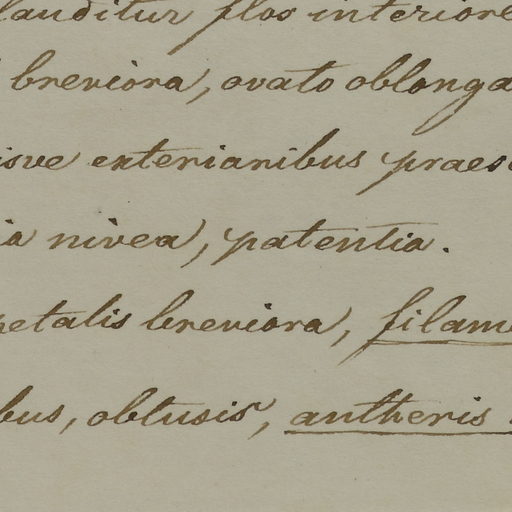 lauditur flos interiore
breviora, ovato oblonga
isve exterioribus praes
ia nivea, patentia.
petalis breviora, filam
bus, obtusis, antheris